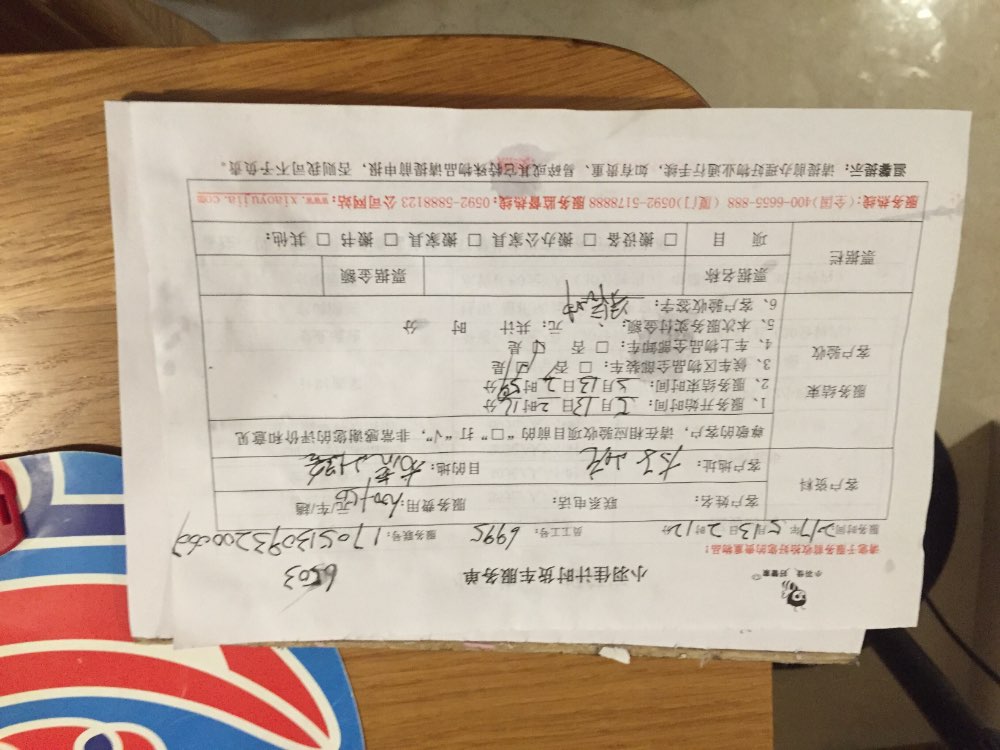 小羽佳 好管家
小羽佳计时货车服务单
6503
请您于服务前收拾好您的贵重物品:
服务时间: 2017年5月13日2时12分 员工工号: 6995 服务联号: 170513093200069
客户资料
客户姓名: 联系电话: 服务费用: 元/车/趟
客户地址: 目的地:
尊敬的客户,请在相应验收项目前的“□”打“√”,非常感谢您的评价和意见
服务结束
客户验收
1、服务开始时间: 5月13日2时12分
2、服务结束时间: 5月13日2时59分
3、候车区物品全部装车: □ 否 □ 是
4、车上物品全部卸车: □ 否 □ 是
5、本次服务支付金额: 、 元; 共计 时 分
6、客户验收签字:
票据栏
票据名称 票据金额
项 目 □ 搬设备 □ 搬办公家具 □ 搬家具 □ 搬书 □ 其他:
服务热线:(全国)400-6655-888 (厦门)0592-5178888 服务监督热线:0592-5888123 公司网站:www.xiaoyujia.com
温馨提示: 请提前办理好物业通行手续,如有贵重、易碎或其它特殊物品请提前申报,否则我司不予负责。